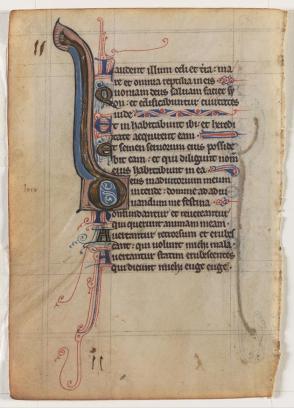 Laudent illum celi et terra: ma
re et omnia reptilia in eis
Quoniam deus saluam faciet sy
on: et edificabuntur ciuitates
iude
Et inhabitabunt ibi: et heredi
tate acquirent eam
Et semen seruorum eius posside
bit eam: et qui diligunt nomen
eius habitabunt in ea
Deus in adiutorium meum
intende: domine ad adiu
uandum me festina
Confundantur et reuereantur
qui querunt animam meam
Auertantur retrorsum et erubes
cant: qui uolunt michi mala
Auertantur statim erubescentes
qui dicunt michi euge euge